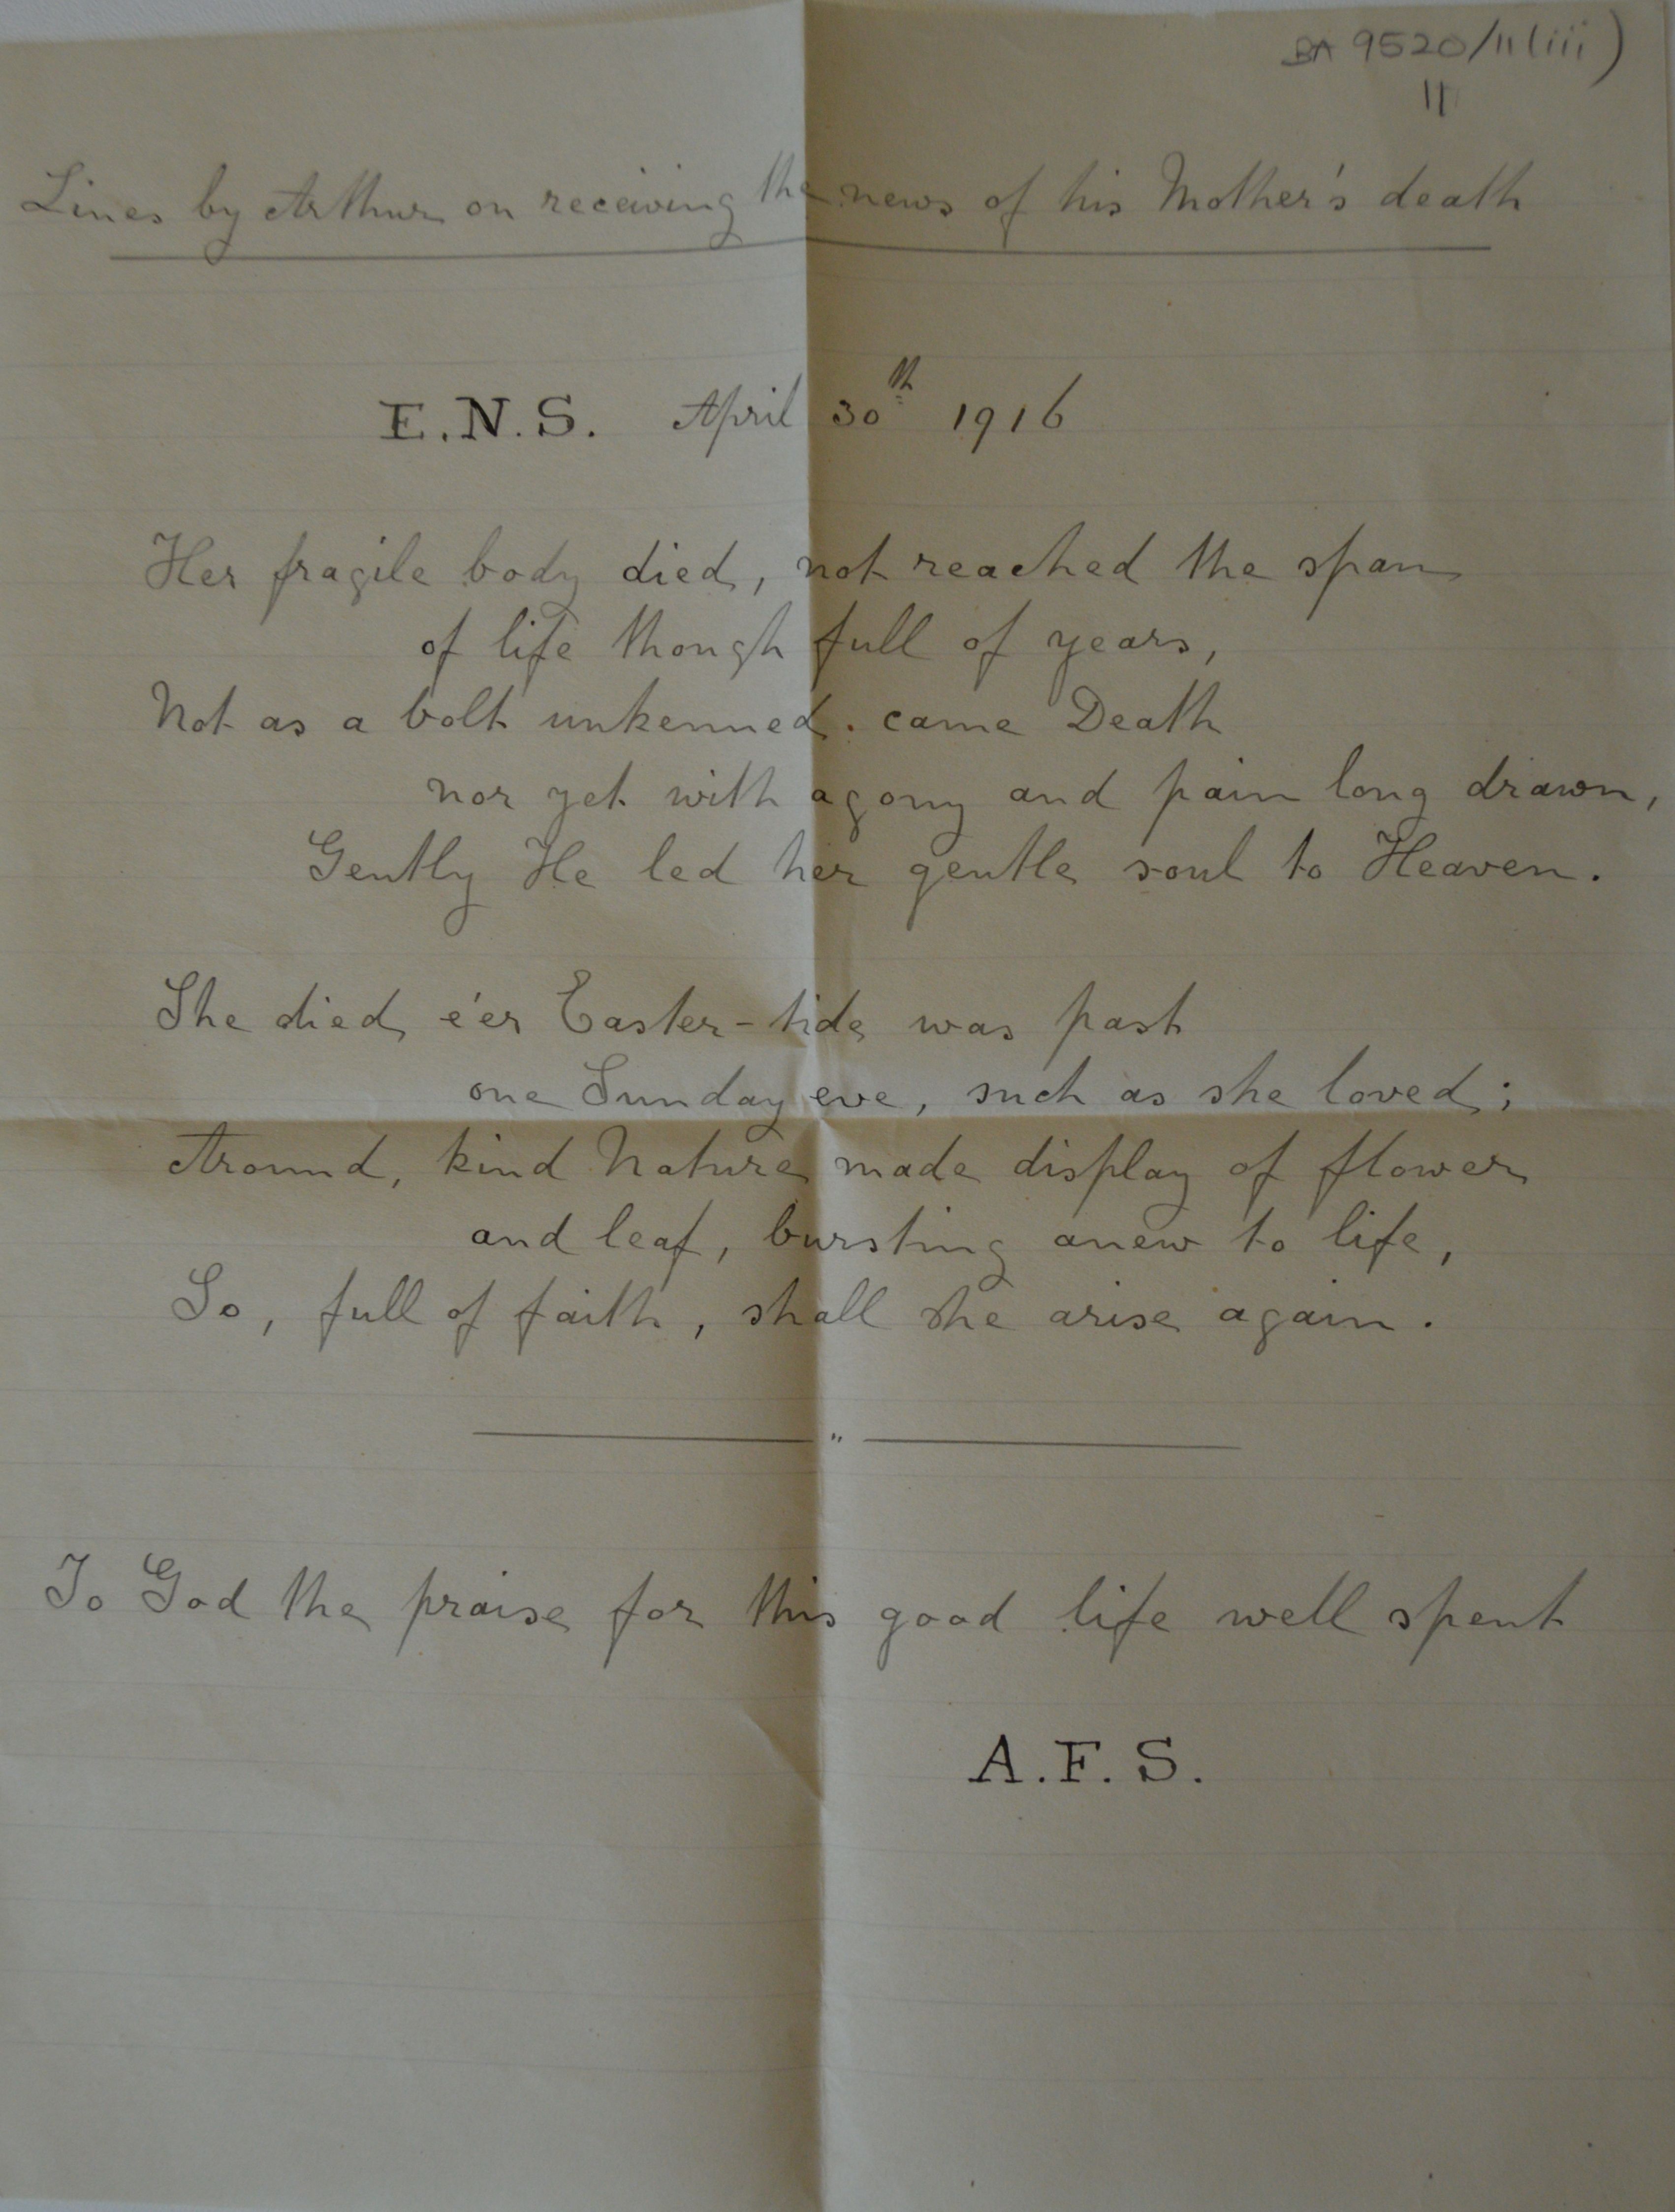 BA 9520/11(iii)
11
Lines by Arthur on receiving the news of his Mother's death
E.N.S. April 30th 1916
Her fragile body died, not reached the span
of life though full of years,
Not as a bolt unkenned. came Death
nor yet with agony and pain long drawn,
Gently He led her gentle soul to Heaven.
She died e'er Easter-tide was past
one Sunday eve, such as she loved;
Around, kind Nature made display of flower
and leaf, bursting anew to life,
So, full of faith, shall she arise again.
To God the praise for this good life well spent
A.F.S.